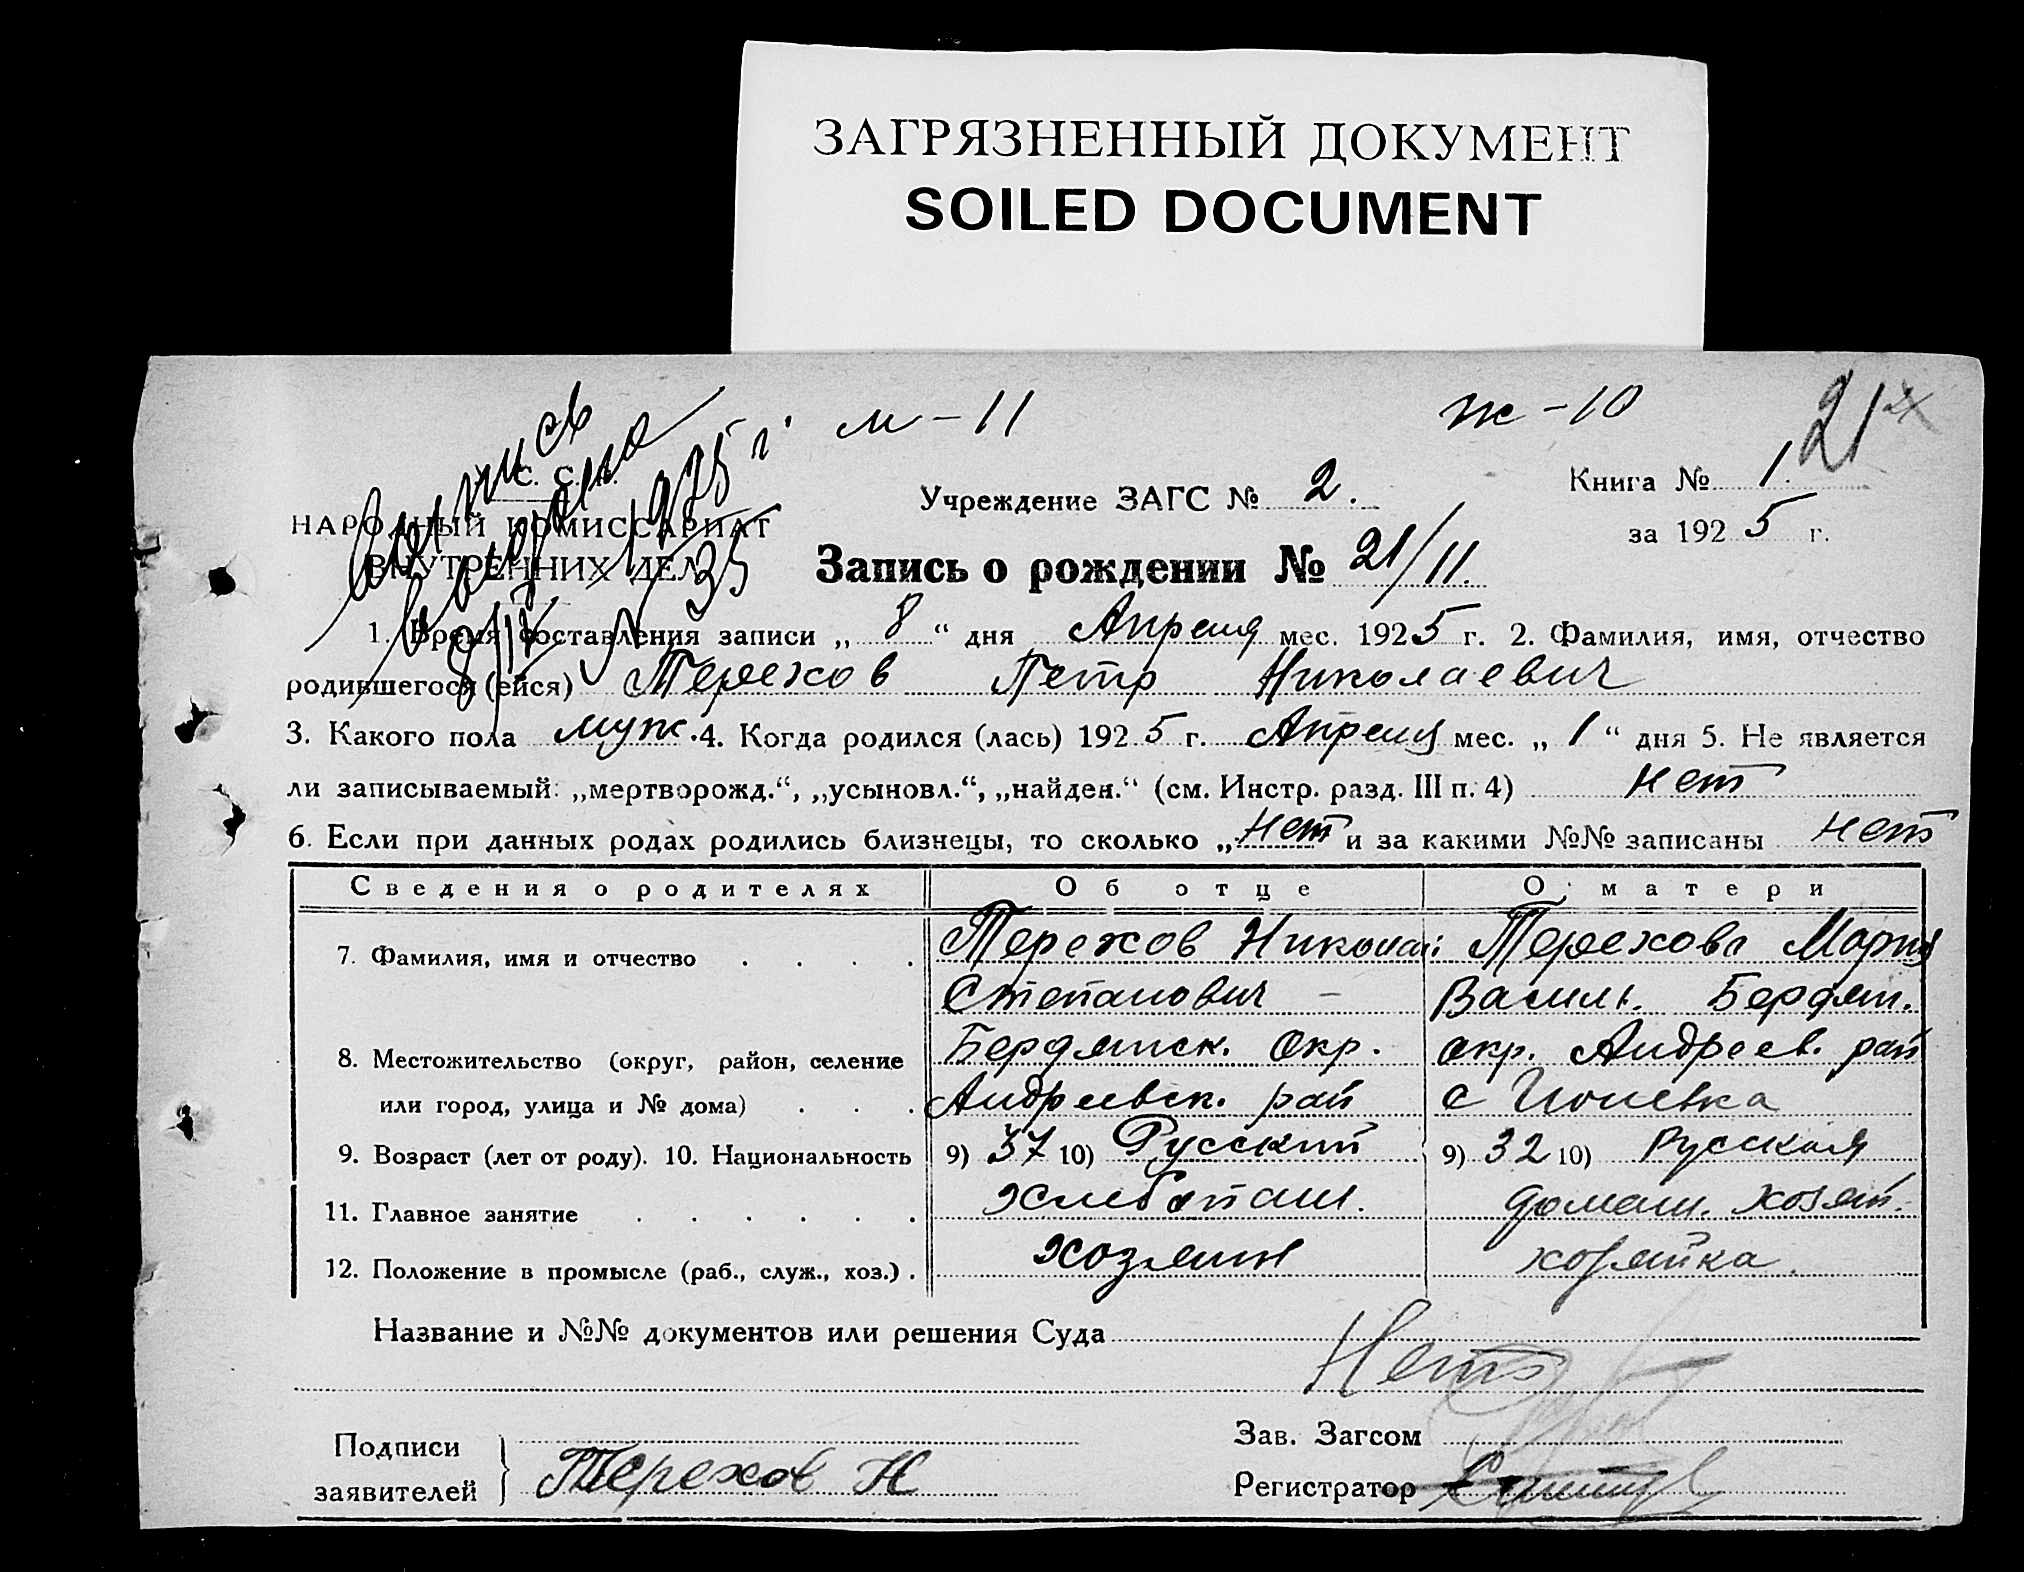 ЗАГРЯЗНЕННЫЙ ДОКУМЕНТ
SOILED DOCUMENT
м – 11
ж – 10
21
Выпись
выдана
1935 г.
Учреждение ЗАГС № 2.
Книга № 1.
за 1925 г.
НАРОДНЫЙ КОМИССАРИАТ
ВНУТРЕННИХ ДЕЛ
Запись о рождении № 21/11.
1. Время составления записи „ 8 “ дня Апреля мес. 1925 г. 2. Фамилия, имя, отчество
родившегося (ейся) Терехов Петр Николаевич
3. Какого пола муж. 4. Когда родился (лась) 1925 г. Апреля мес. „ 1 “ дня 5. Не является
ли записываемый: „мертворожд.“, „усыновл.“, „найден.“ (см. Инстр. разд. III п. 4) нет
6. Если при данных родах родились близнецы, то сколько „ нет и за какими №№ записаны нет
Сведения о родителях Об отце О матери
7. Фамилия, имя и отчество . . . . Терехов Николай Терехова Мария
Степанович – Василь. Бердян.
8. Местожительство (округ, район, селение Бердянск. окр. окр. Андреев. рай
или город, улица и № дома) . . . Андреевск. рай с
9. Возраст (лет от роду). 10. Национальность 9) 37 10) Русский 9) 32 10) Русская
11. Главное занятие . . . . . . Хлебопаш. домаш. хозяй.
12. Положение в промысле (раб., служ., хоз.) . хозяин хозяйка.
Название и №№ документов или решения Суда
Нет
Подписи
заявителей } Терехов Н
Зав. Загсом
Регистратор